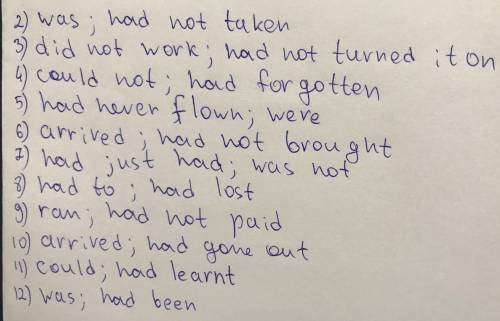 2) was; had not taken
3) did not work; had not turned it on
4) could not; had forgotten
5) had never flown; were
6) arrived; had not brought
7) had just had; was not
8) had to; had lost
9) ran; had not paid
10) arrived; had gone out
11) could; had learnt
12) was; had been